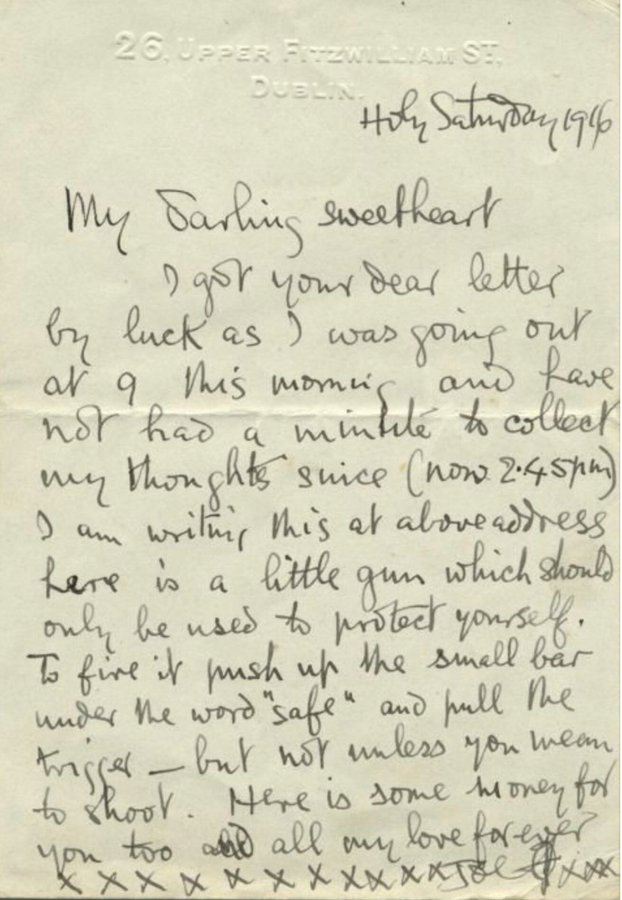 26, UPPER FITZWILLIAM ST,
DUBLIN.
Holy Saturday 1916
My Darling sweetheart
I got your dear letter
by luck as I was going out
at 9 this morning and have
not had a minute to collect
my thoughts since (now 2.45pm)
I am writing this at above address
here is a little gun which should
only be used to protect yourself.
To fire it push up the small bar
under the word "safe" and pull the
trigger — but not unless you mean
to shoot. Here is some money for
you too and all my love forever
x x x x x x x x x x x x x Joe x x x